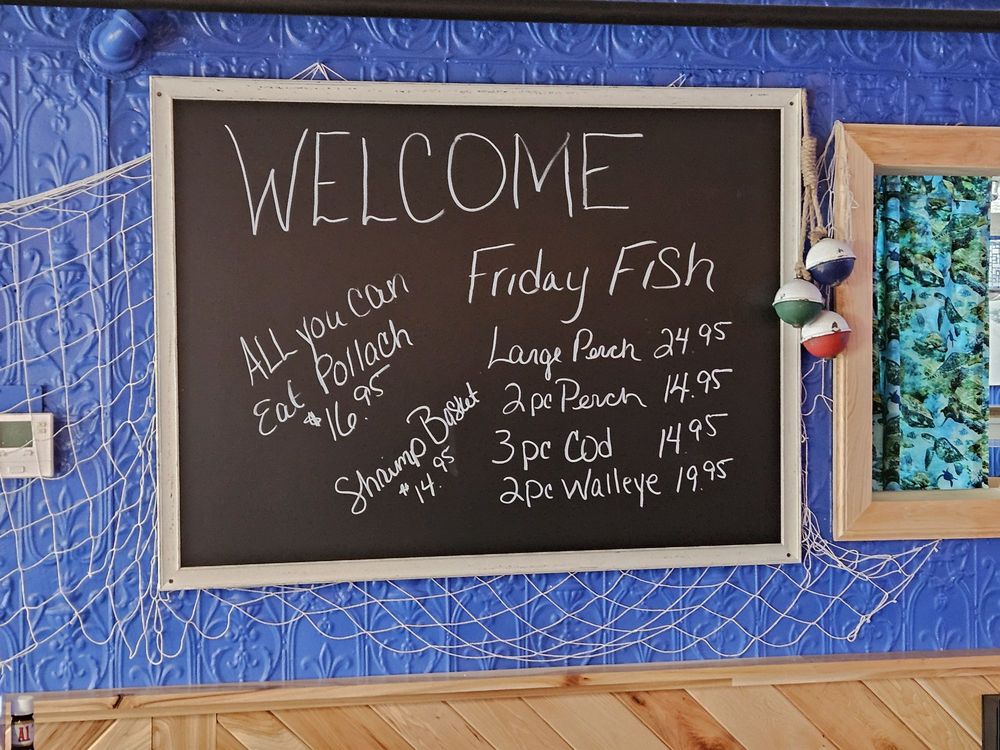 WELCOME
ALL you can
Eat Pollach
$16.95
Shrimp Basket
$14.95
Friday Fish
Large Perch 24.95
2pc Perch 14.95
3pc Cod 14.95
2pc Walleye 19.95
A1